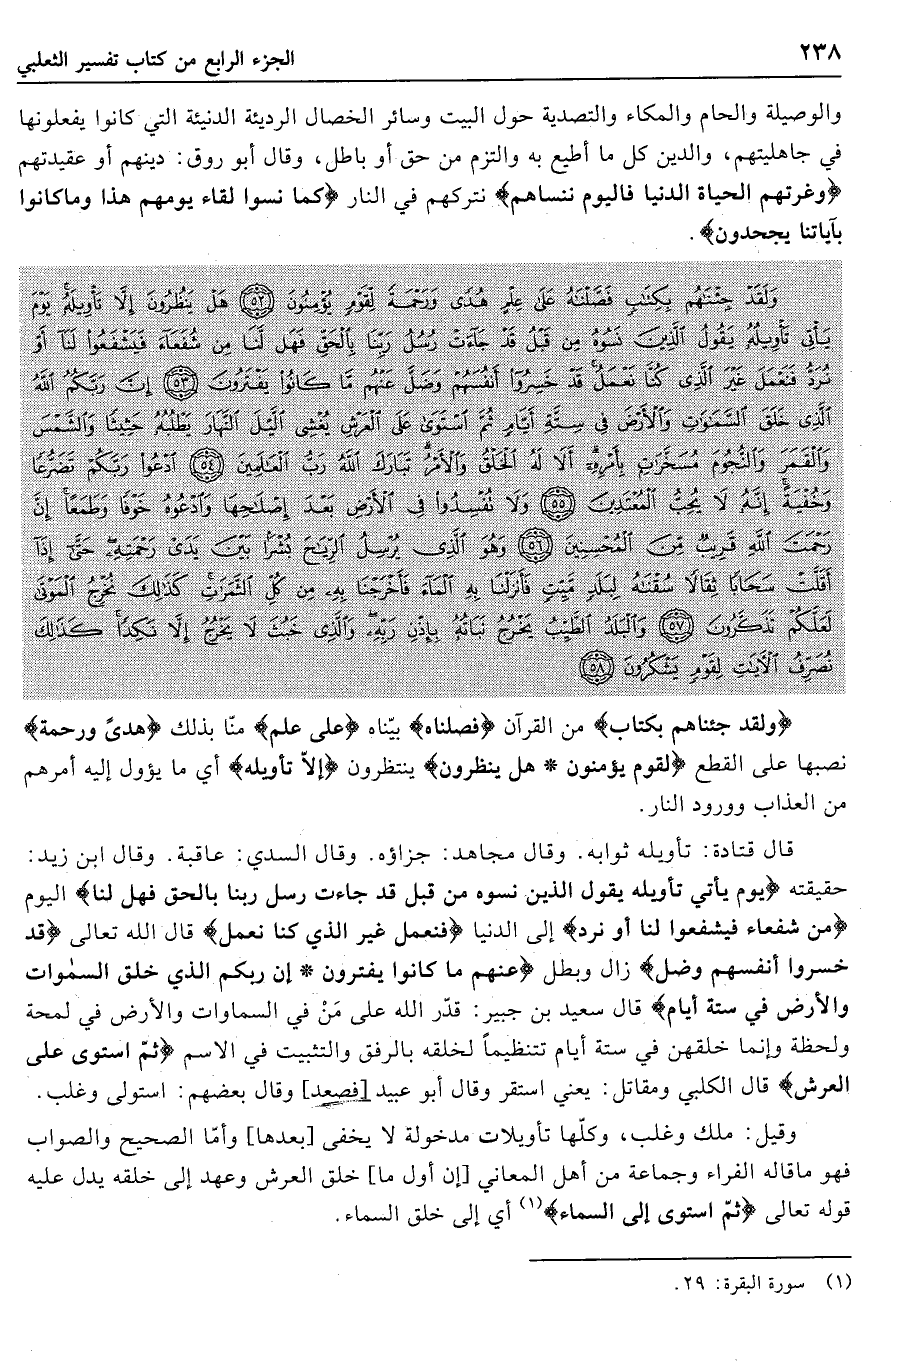 ٢٣٨
الجزء الرابع من كتاب تفسير الثعلبي
والوصيلة والحام والمكاء والتصدية حول البيت وسائر الخصال الرديئة الدنيئة التي كانوا يفعلونها
في جاهليتهم، والدين كل ما أطيع به والتزم من حق أو باطل، وقال أبو روق: دينهم أو عقيدتهم
﴿وغرتهم الحياة الدنيا فاليوم ننساهم﴾ نتركهم في النار ﴿كما نسوا لقاء يومهم هذا وماكانوا
بآياتنا يجحدون﴾.
وَلَقَدْ جِئْنَٰهُم بِكِتَٰبٍ فَصَّلْنَٰهُ عَلَىٰ عِلْمٍ هُدًى وَرَحْمَةً لِّقَوْمٍ يُؤْمِنُونَ ﴿٥٢﴾ هَلْ يَنظُرُونَ إِلَّا تَأْوِيلَهُۥ يَوْمَ
يَأْتِي تَأْوِيلُهُۥ يَقُولُ ٱلَّذِينَ نَسُوهُ مِن قَبْلُ قَدْ جَآءَتْ رُسُلُ رَبِّنَا بِٱلْحَقِّ فَهَل لَّنَا مِن شُفَعَآءَ فَيَشْفَعُوا۟ لَنَآ أَوْ
نُرَدُّ فَنَعْمَلَ غَيْرَ ٱلَّذِي كُنَّا نَعْمَلُ قَدْ خَسِرُوٓا۟ أَنفُسَهُمْ وَضَلَّ عَنْهُم مَّا كَانُوا۟ يَفْتَرُونَ ﴿٥٣﴾ إِنَّ رَبَّكُمُ ٱللَّهُ
ٱلَّذِي خَلَقَ ٱلسَّمَٰوَٰتِ وَٱلْأَرْضَ فِي سِتَّةِ أَيَّامٍ ثُمَّ ٱسْتَوَىٰ عَلَى ٱلْعَرْشِ يُغْشِي ٱلَّيْلَ ٱلنَّهَارَ يَطْلُبُهُۥ حَثِيثًا وَٱلشَّمْسَ
وَٱلْقَمَرَ وَٱلنُّجُومَ مُسَخَّرَٰتٍۭ بِأَمْرِهِۦٓ أَلَا لَهُ ٱلْخَلْقُ وَٱلْأَمْرُ تَبَارَكَ ٱللَّهُ رَبُّ ٱلْعَٰلَمِينَ ﴿٥٤﴾ ٱدْعُوا۟ رَبَّكُمْ تَضَرُّعًا
وَخُفْيَةً إِنَّهُۥ لَا يُحِبُّ ٱلْمُعْتَدِينَ ﴿٥٥﴾ وَلَا تُفْسِدُوا۟ فِي ٱلْأَرْضِ بَعْدَ إِصْلَٰحِهَا وَٱدْعُوهُ خَوْفًا وَطَمَعًا إِنَّ
رَحْمَتَ ٱللَّهِ قَرِيبٌ مِّنَ ٱلْمُحْسِنِينَ ﴿٥٦﴾ وَهُوَ ٱلَّذِي يُرْسِلُ ٱلرِّيَٰحَ بُشْرًۢا بَيْنَ يَدَيْ رَحْمَتِهِۦ حَتَّىٰٓ إِذَآ
أَقَلَّتْ سَحَابًا ثِقَالًا سُقْنَٰهُ لِبَلَدٍ مَّيِّتٍ فَأَنزَلْنَا بِهِ ٱلْمَآءَ فَأَخْرَجْنَا بِهِۦ مِن كُلِّ ٱلثَّمَرَٰتِ كَذَٰلِكَ نُخْرِجُ ٱلْمَوْتَىٰ
لَعَلَّكُمْ تَذَكَّرُونَ ﴿٥٧﴾ وَٱلْبَلَدُ ٱلطَّيِّبُ يَخْرُجُ نَبَاتُهُۥ بِإِذْنِ رَبِّهِۦ وَٱلَّذِي خَبُثَ لَا يَخْرُجُ إِلَّا نَكِدًا كَذَٰلِكَ
نُصَرِّفُ ٱلْءَايَٰتِ لِقَوْمٍ يَشْكُرُونَ ﴿٥٨﴾
﴿ولقد جئناهم بكتاب﴾ من القرآن ﴿فصلناه﴾ بيّناه ﴿على علم﴾ منّا بذلك ﴿هدىً ورحمة﴾
نصبها على القطع ﴿لقوم يؤمنون * هل ينظرون﴾ ينتظرون ﴿إلاّ تأويله﴾ أي ما يؤول إليه أمرهم
من العذاب وورود النار.
قال قتادة: تأويله ثوابه. وقال مجاهد: جزاؤه. وقال السدي: عاقبة. وقال ابن زيد:
حقيقته ﴿يوم يأتي تأويله يقول الذين نسوه من قبل قد جاءت رسل ربنا بالحق فهل لنا﴾ اليوم
﴿من شفعاء فيشفعوا لنا أو نرد﴾ إلى الدنيا ﴿فنعمل غير الذي كنا نعمل﴾ قال الله تعالى ﴿قد
خسروا أنفسهم وضل﴾ زال وبطل ﴿عنهم ما كانوا يفترون * إن ربكم الذي خلق السمٰوات
والأرض في ستة أيام﴾ قال سعيد بن جبير: قدّر الله على مَنْ في السماوات والأرض في لمحة
ولحظة وإنما خلقهن في ستة أيام تتنظيماً لخلقه بالرفق والتثبيت في الاسم ﴿ثمّ استوى على
العرش﴾ قال الكلبي ومقاتل: يعني استقر وقال أبو عبيد [فصعد] وقال بعضهم: استولى وغلب.
وقيل: ملك وغلب، وكلّها تأويلات مدخولة لا يخفى [بعدها] وأمّا الصحيح والصواب
فهو ماقاله الفراء وجماعة من أهل المعاني [إن أول ما] خلق العرش وعهد إلى خلقه يدل عليه
قوله تعالى ﴿ثمّ استوى إلى السماء﴾(١) أي إلى خلق السماء.
(١) سورة البقرة: ٢٩.